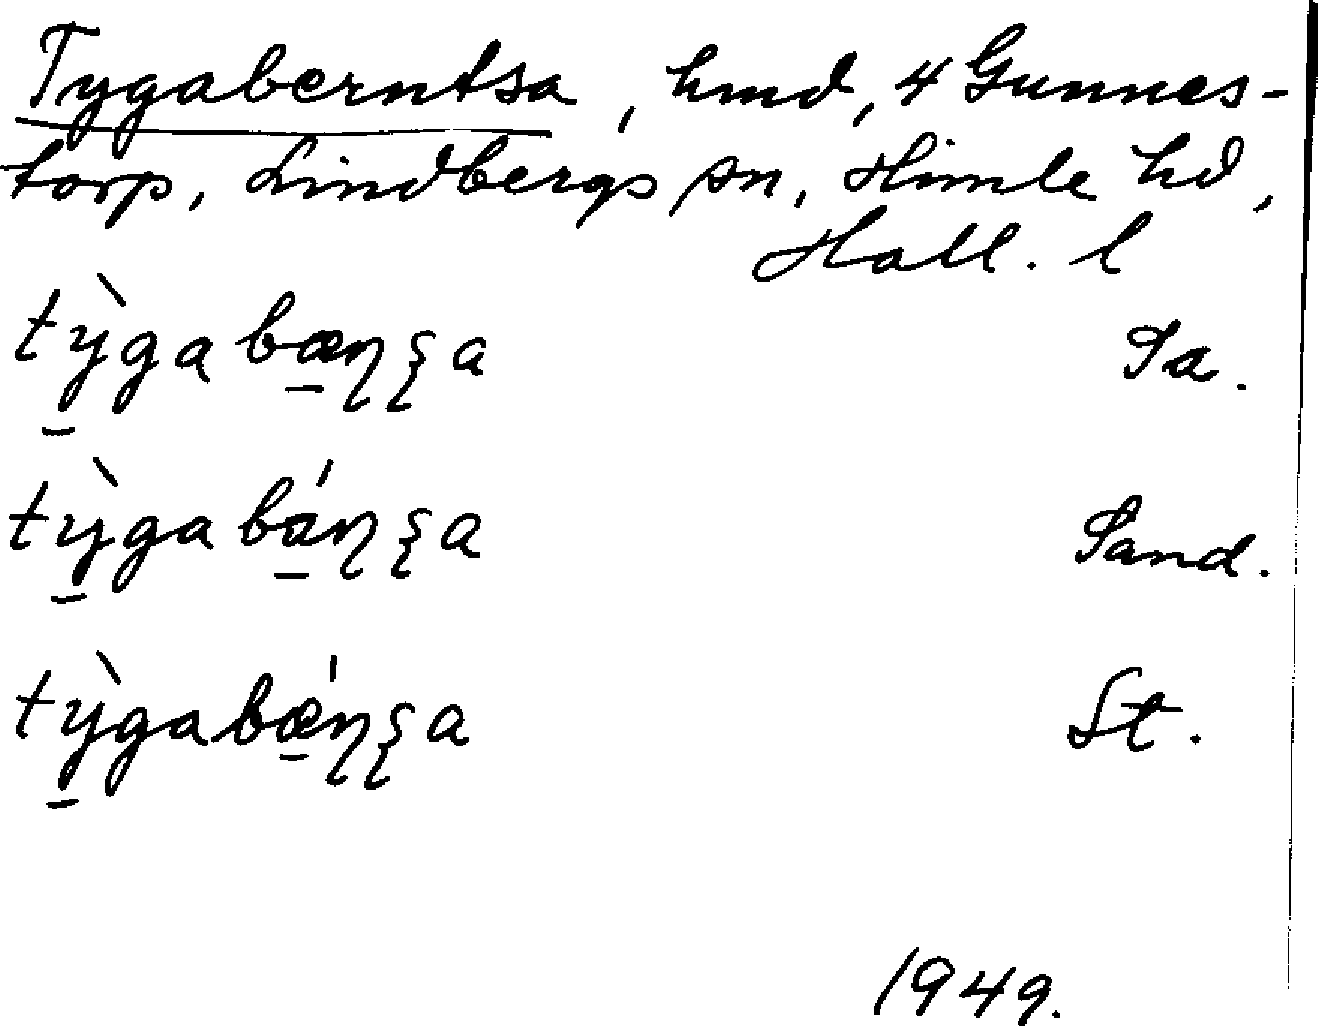 Tygaberntsa, hmd, 4 Gunnes-
torp, Lindbergs sn, Himle hd,
Hall. l
tỳ̠gabæ̠ɳʂa Sa.
tỳ̠gabá̠ɳʂa Sand.
tỳ̠gabǽ̠ɳʂa St.
1949.